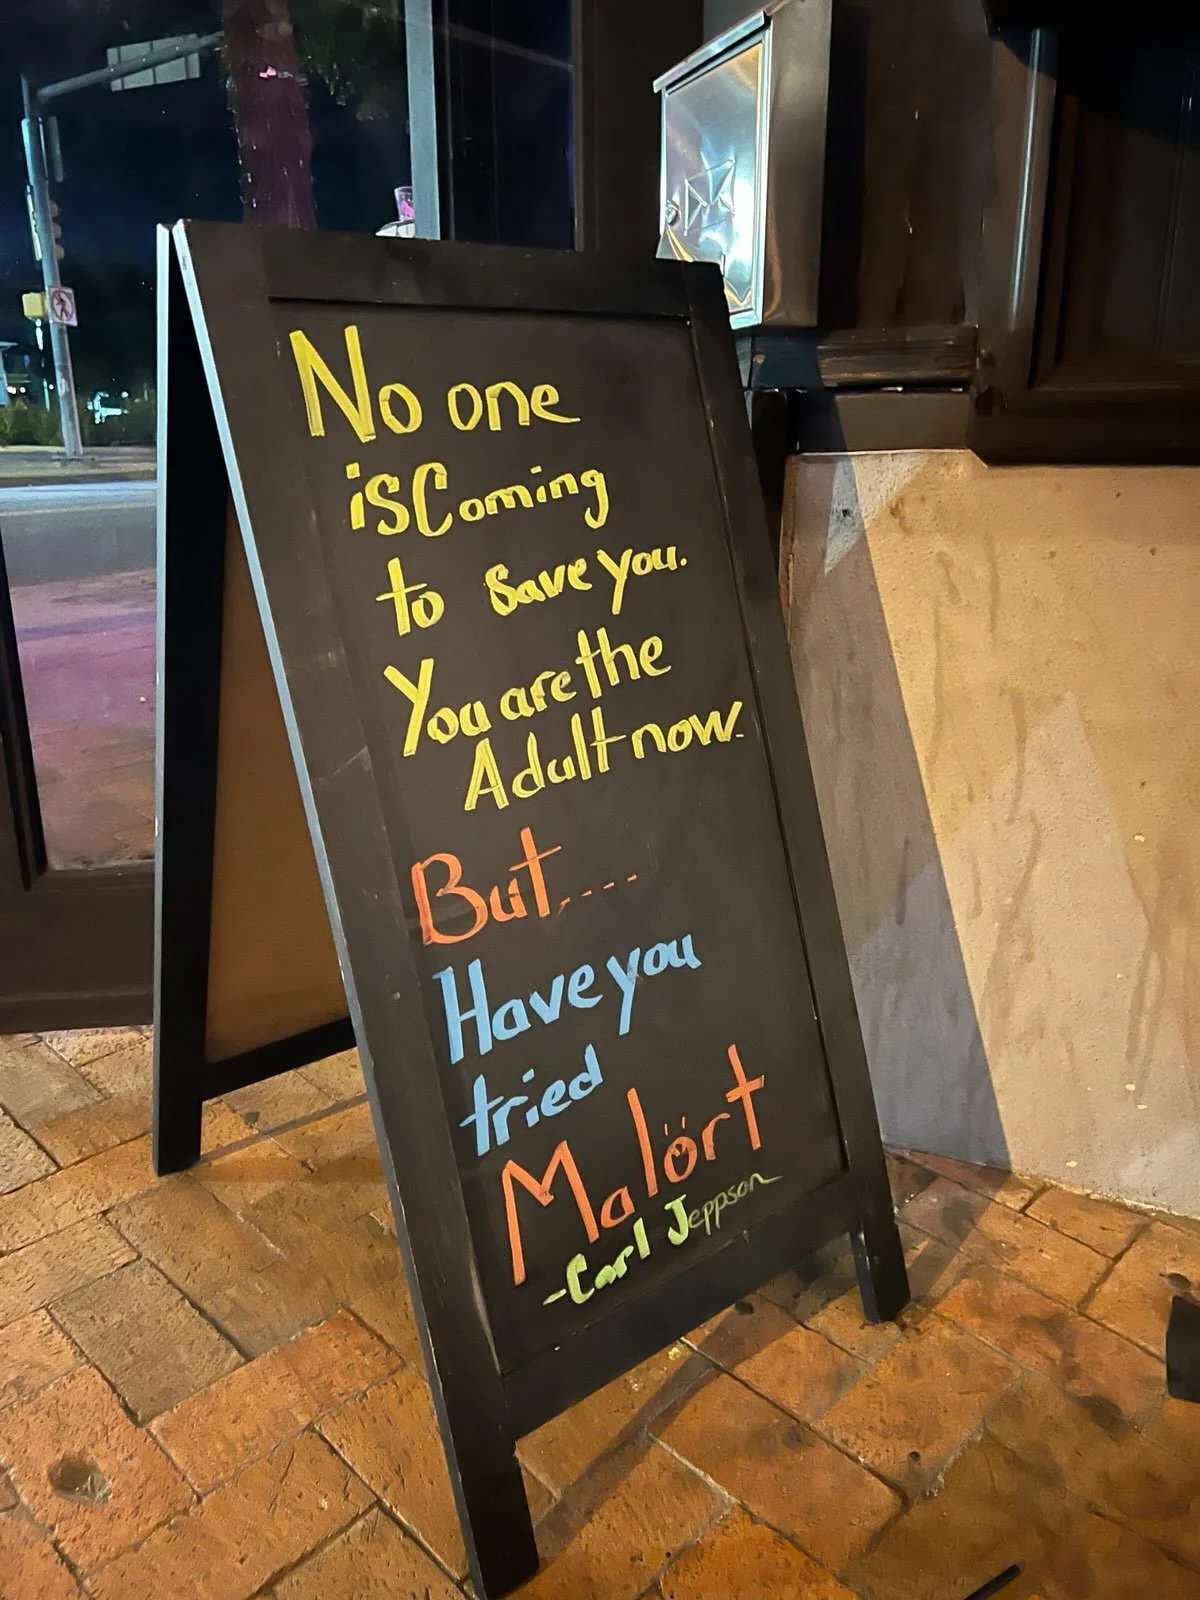 No one
is Coming
to Save you.
You are the
Adult now.
But,....
Have you
tried
Malört
-Carl Jeppson